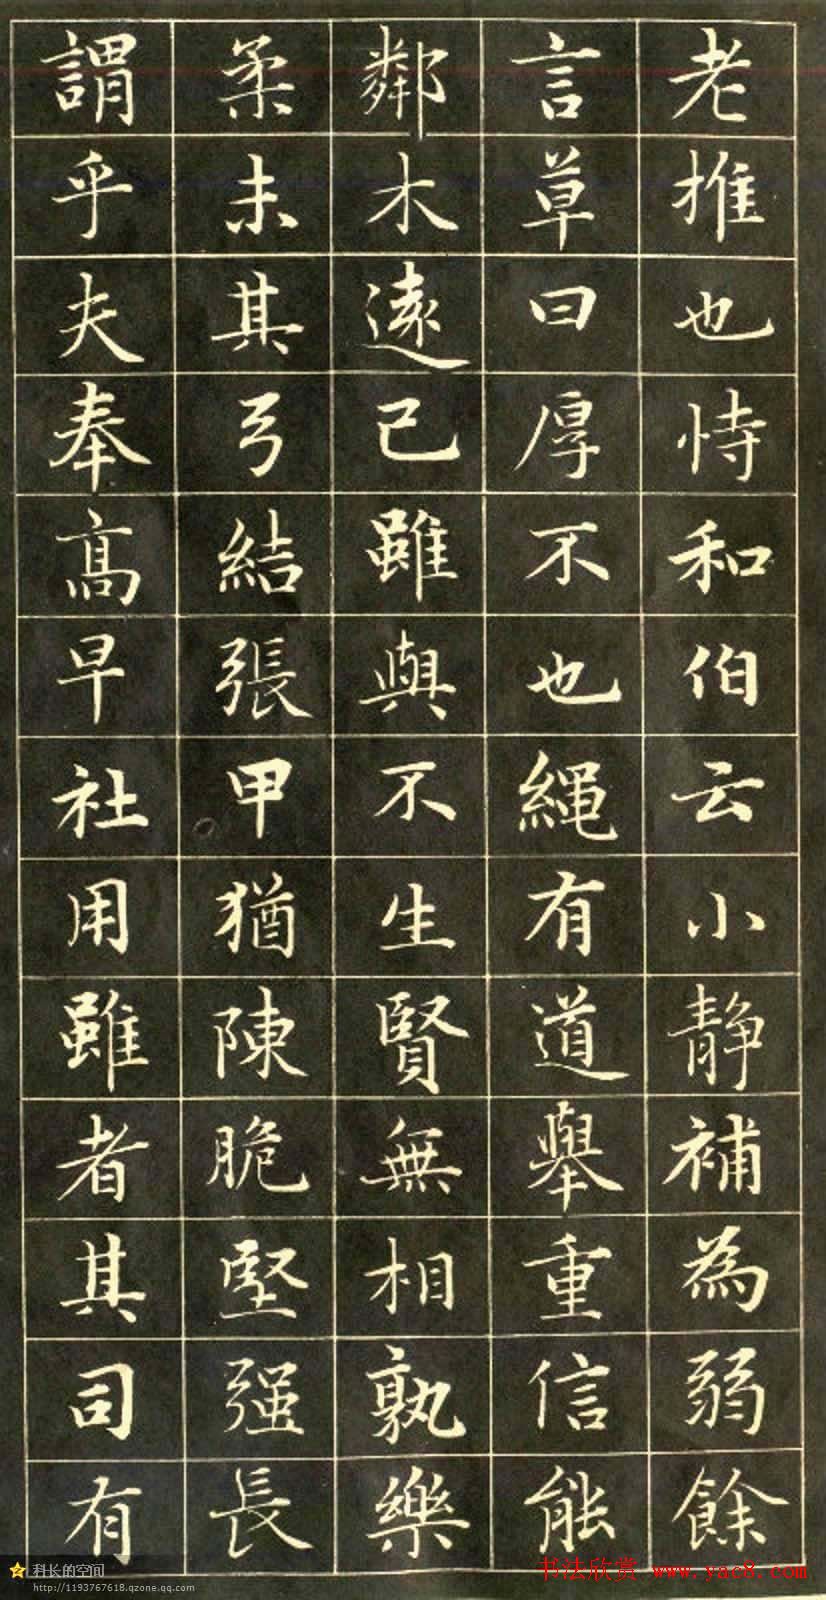 老推也恃和伯云小静補為弱餘
言草曰厚不也繩有道舉重信能
鄰木遠己雖與不生賢無相孰樂
柔未其弓結張甲猶陳脆堅强長
謂乎夫奉髙早社用雖者其司有
科长的空间
http://1193767618.qzone.qq.com
书法欣赏 www.yac8.com